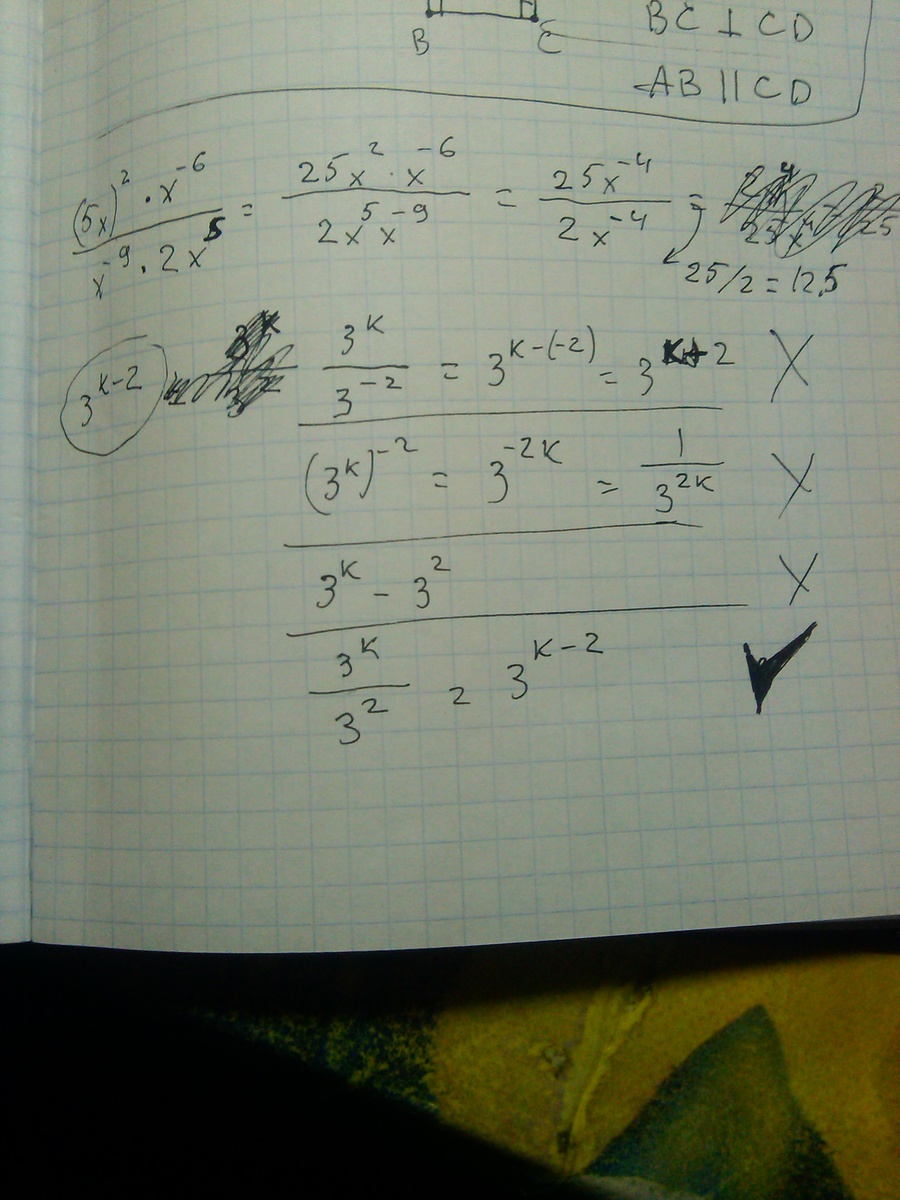 B C BC ⊥ CD
AB || CD
(5x)² · x⁻⁶ / x⁻⁹ · 2x⁵ = 25x² · x⁻⁶ / 2x⁵x⁻⁹ = 25x⁻⁴ / 2x⁻⁴ =
25/2 = 12,5
3ᵏ⁻² 3ᵏ / 3⁻² = 3ᵏ⁻⁽⁻²⁾ = 3ᵏ⁺² X
(3ᵏ)⁻² = 3⁻²ᵏ = 1 / 3²ᵏ X
3ᵏ - 3² X
3ᵏ / 3² = 3ᵏ⁻² ✓